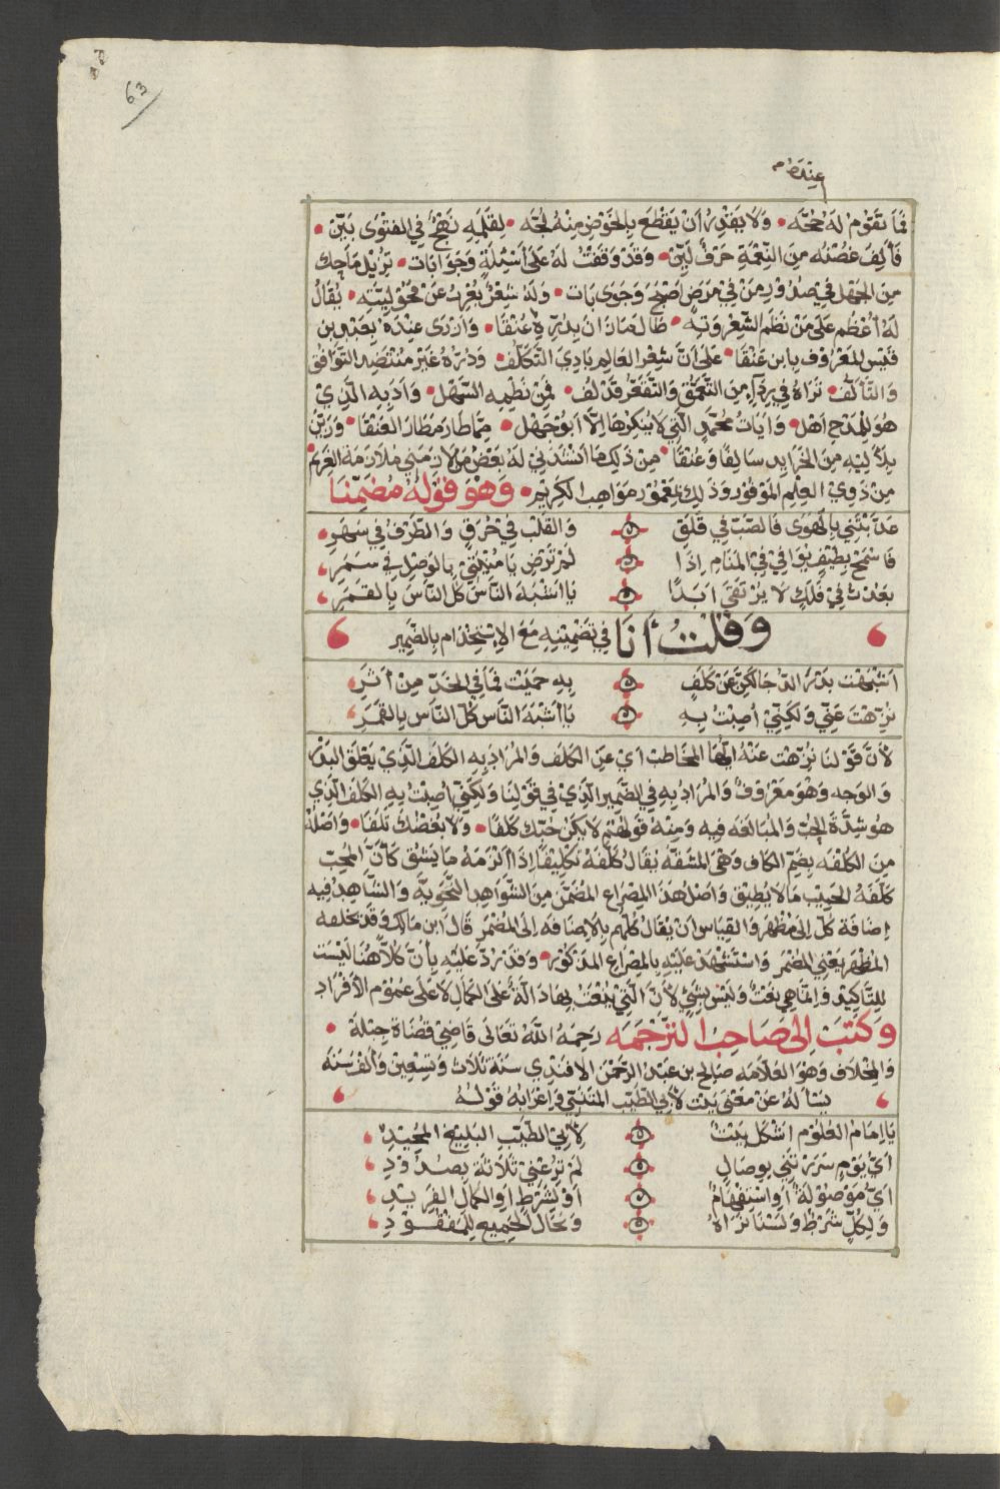 63
عنده
فما تقوم له حجّه • ولا يقدر أن يقطع بالخوض منه لجّه • لقلمه نهج في الفتوى بيّن •
فألِفَ غصنه من النعمة حرف ليّن • وقد وقفت له على أسئلة وجوابات • تزيل ما حاك
من الجهل في صدور من في مرض أضحى وجوى بات • وله شعر يغرب عن محو لبيته • يقال
له أعظم على من نظم الشعر وتيه • طالما زان بدرّه عنقا • وازرى عنده بعبد بن
قيس المعروف بابن عنقا • على أنّ شعر العالم بادي التكلّف • ودرّه غير منتضد التوافق
والتألّف • تراه في برد من التعمّق والتقعّر قد لف • فمن نظمه السهل • وأدبه الذي
هو للمدح أهل • وايات محمد التي لا ينكرها إلا أبو جهل • مما طار مطار العنقا • وزيّن
بلآليه من الخرايد سالفا وعنقا • من ذلك ما انشدني له بعض من لازمني ملازمة الغريم
من ذوي العلم الموفور وذلك مغمور مواهب الكريم • وهو قوله مضمّنا
عذّبتني بالهوى فالصبّ في قلق والقلب في حرق والطرف في سهر
فاسمح بطيف يوافي في المنام إذا لم ترض يا منيتي بالوصل في سمر
بعدت في فلك لا يرتقى أبدًا يا أشبه الناس كل الناس بالقمر
وقلت أنا في تضمينه مع الاستخدام بالضمير
اشبهت بدر الدجا لكن عن كلف به حميت فما في الخدّ من أثر
نزّهت عنّي ولكنّي أصبت به يا أشبه الناس كل الناس بالقمر
لأنّ قولنا نزّهت عنه ايها المخاطب أي عن الكلف والمراد به الكلف الذي يعلق البدر
والوجه وهو معروف والمراد به في الضمير الذي في قولنا ولكني أصبت به الكلف الذي
هو شدّة الحب والمبالغه فيه ومنه قولهم لا يكن حبّك كلفا • ولا بغضك تلفا • وأصله
من الكلفه بضم الكاف وهي المشقّه يقال كلّفه تكليفا إذا ألزمه ما يشق كأنّ المحبّ
كلّفه الحبيب ما لا يطيق وأصل هذا المصراع المضمّن من الشواهد النحويّه والشاهد فيه
إضافة كل إلى مظهر والقياس أن يقال كلّهم بالإضافه إلى المضمر قال ابن مالك وقد يخلفه
المظهر يعني المضمر واستشهد عليه بالمصراع المذكور • وقد ردّ عليه بأن كلاّ هنا ليست
للتاكيد وانما هي نعت وليس بشيء لأنّ التي ينعت بها دالّة على الكمال لا على عموم الأفراد
وكتب إلى صاحب الترجمه رحمه الله تعالى قاضي قضاة جبلة •
والمخلاف وهو العلامه صالح بن عبد الرحمن الافندي سنة ثلاث وتسعين وألف سنه
يسأله عن معنى بيت لأبي الطيّب المتنبّي وإعرابه قوله
يا إمام العلوم أشكل بيت لأبي الطيّب البليغ المجيد
أيّ يوم سررتني بوصال لم ترعني ثلاثة بصدود
أيّ موصولة أو استفهام أو لشرط أو الكمال الفريد
ولكلّ شرط ولسنا نراه ومحال الجميع للمفقود